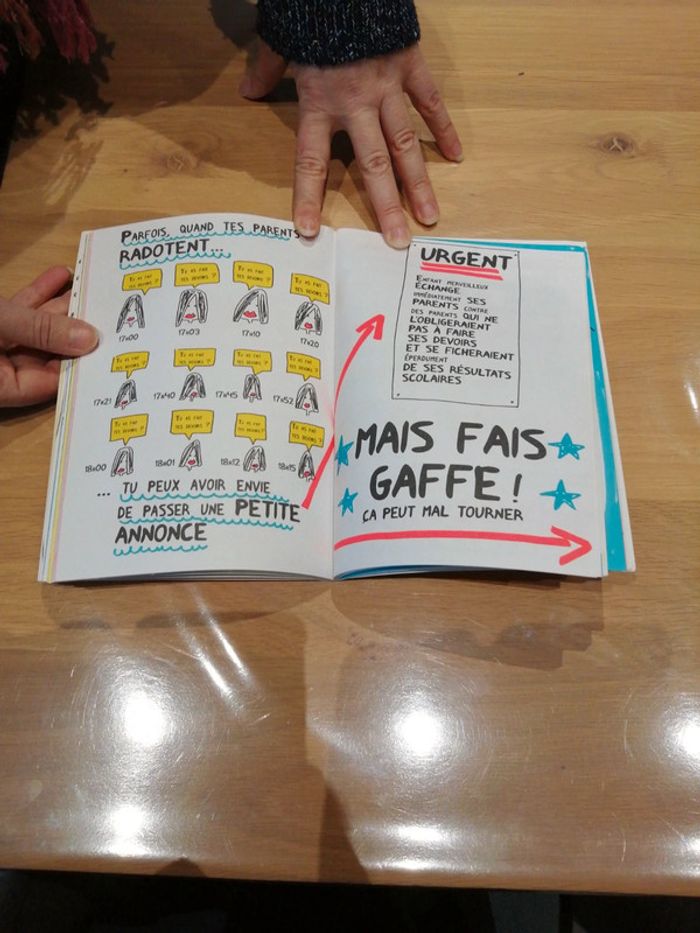 PARFOIS, QUAND TES PARENTS
RADOTENT...
TU AS FAIT TES DEVOIRS ?
TU AS FAIT TES DEVOIRS ?
TU AS FAIT TES DEVOIRS ?
TU AS FAIT TES DEVOIRS ?
17H00
17H03
17H10
17H20
TU AS FAIT TES DEVOIRS ?
TU AS FAIT TES DEVOIRS ?
TU AS FAIT TES DEVOIRS ?
TU AS FAIT TES DEVOIRS ?
17H21
17H40
17H45
17H52
TU AS FAIT TES DEVOIRS ?
TU AS FAIT TES DEVOIRS ?
TU AS FAIT TES DEVOIRS ?
TU AS FAIT TES DEVOIRS ?
18H00
18H01
18H12
18H15
... TU PEUX AVOIR ENVIE
DE PASSER UNE PETITE
ANNONCE
URGENT
ENFANT MERVEILLEUX
ÉCHANGE
IMMÉDIATEMENT SES
PARENTS CONTRE
DES PARENTS QUI NE
L'OBLIGERAIENT
PAS À FAIRE
SES DEVOIRS
ET SE FICHERAIENT
ÉPERDUMENT
DE SES RÉSULTATS
SCOLAIRES
MAIS FAIS
GAFFE !
ÇA PEUT MAL TOURNER